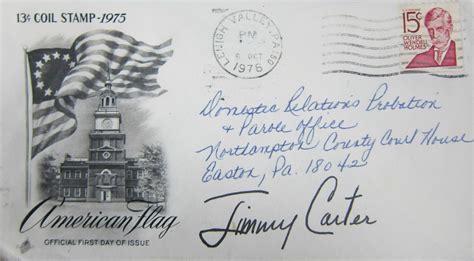 13¢ COIL STAMP-1975
American Flag
OFFICIAL FIRST DAY OF ISSUE
LEHIGH VALLEY, PA 180
PM
6 OCT
1976
15¢
OLIVER
WENDELL
HOLMES
Domestic Relations Probation
& Parole Office
Northampton County Court House
Easton, Pa. 18042
Jimmy Carter